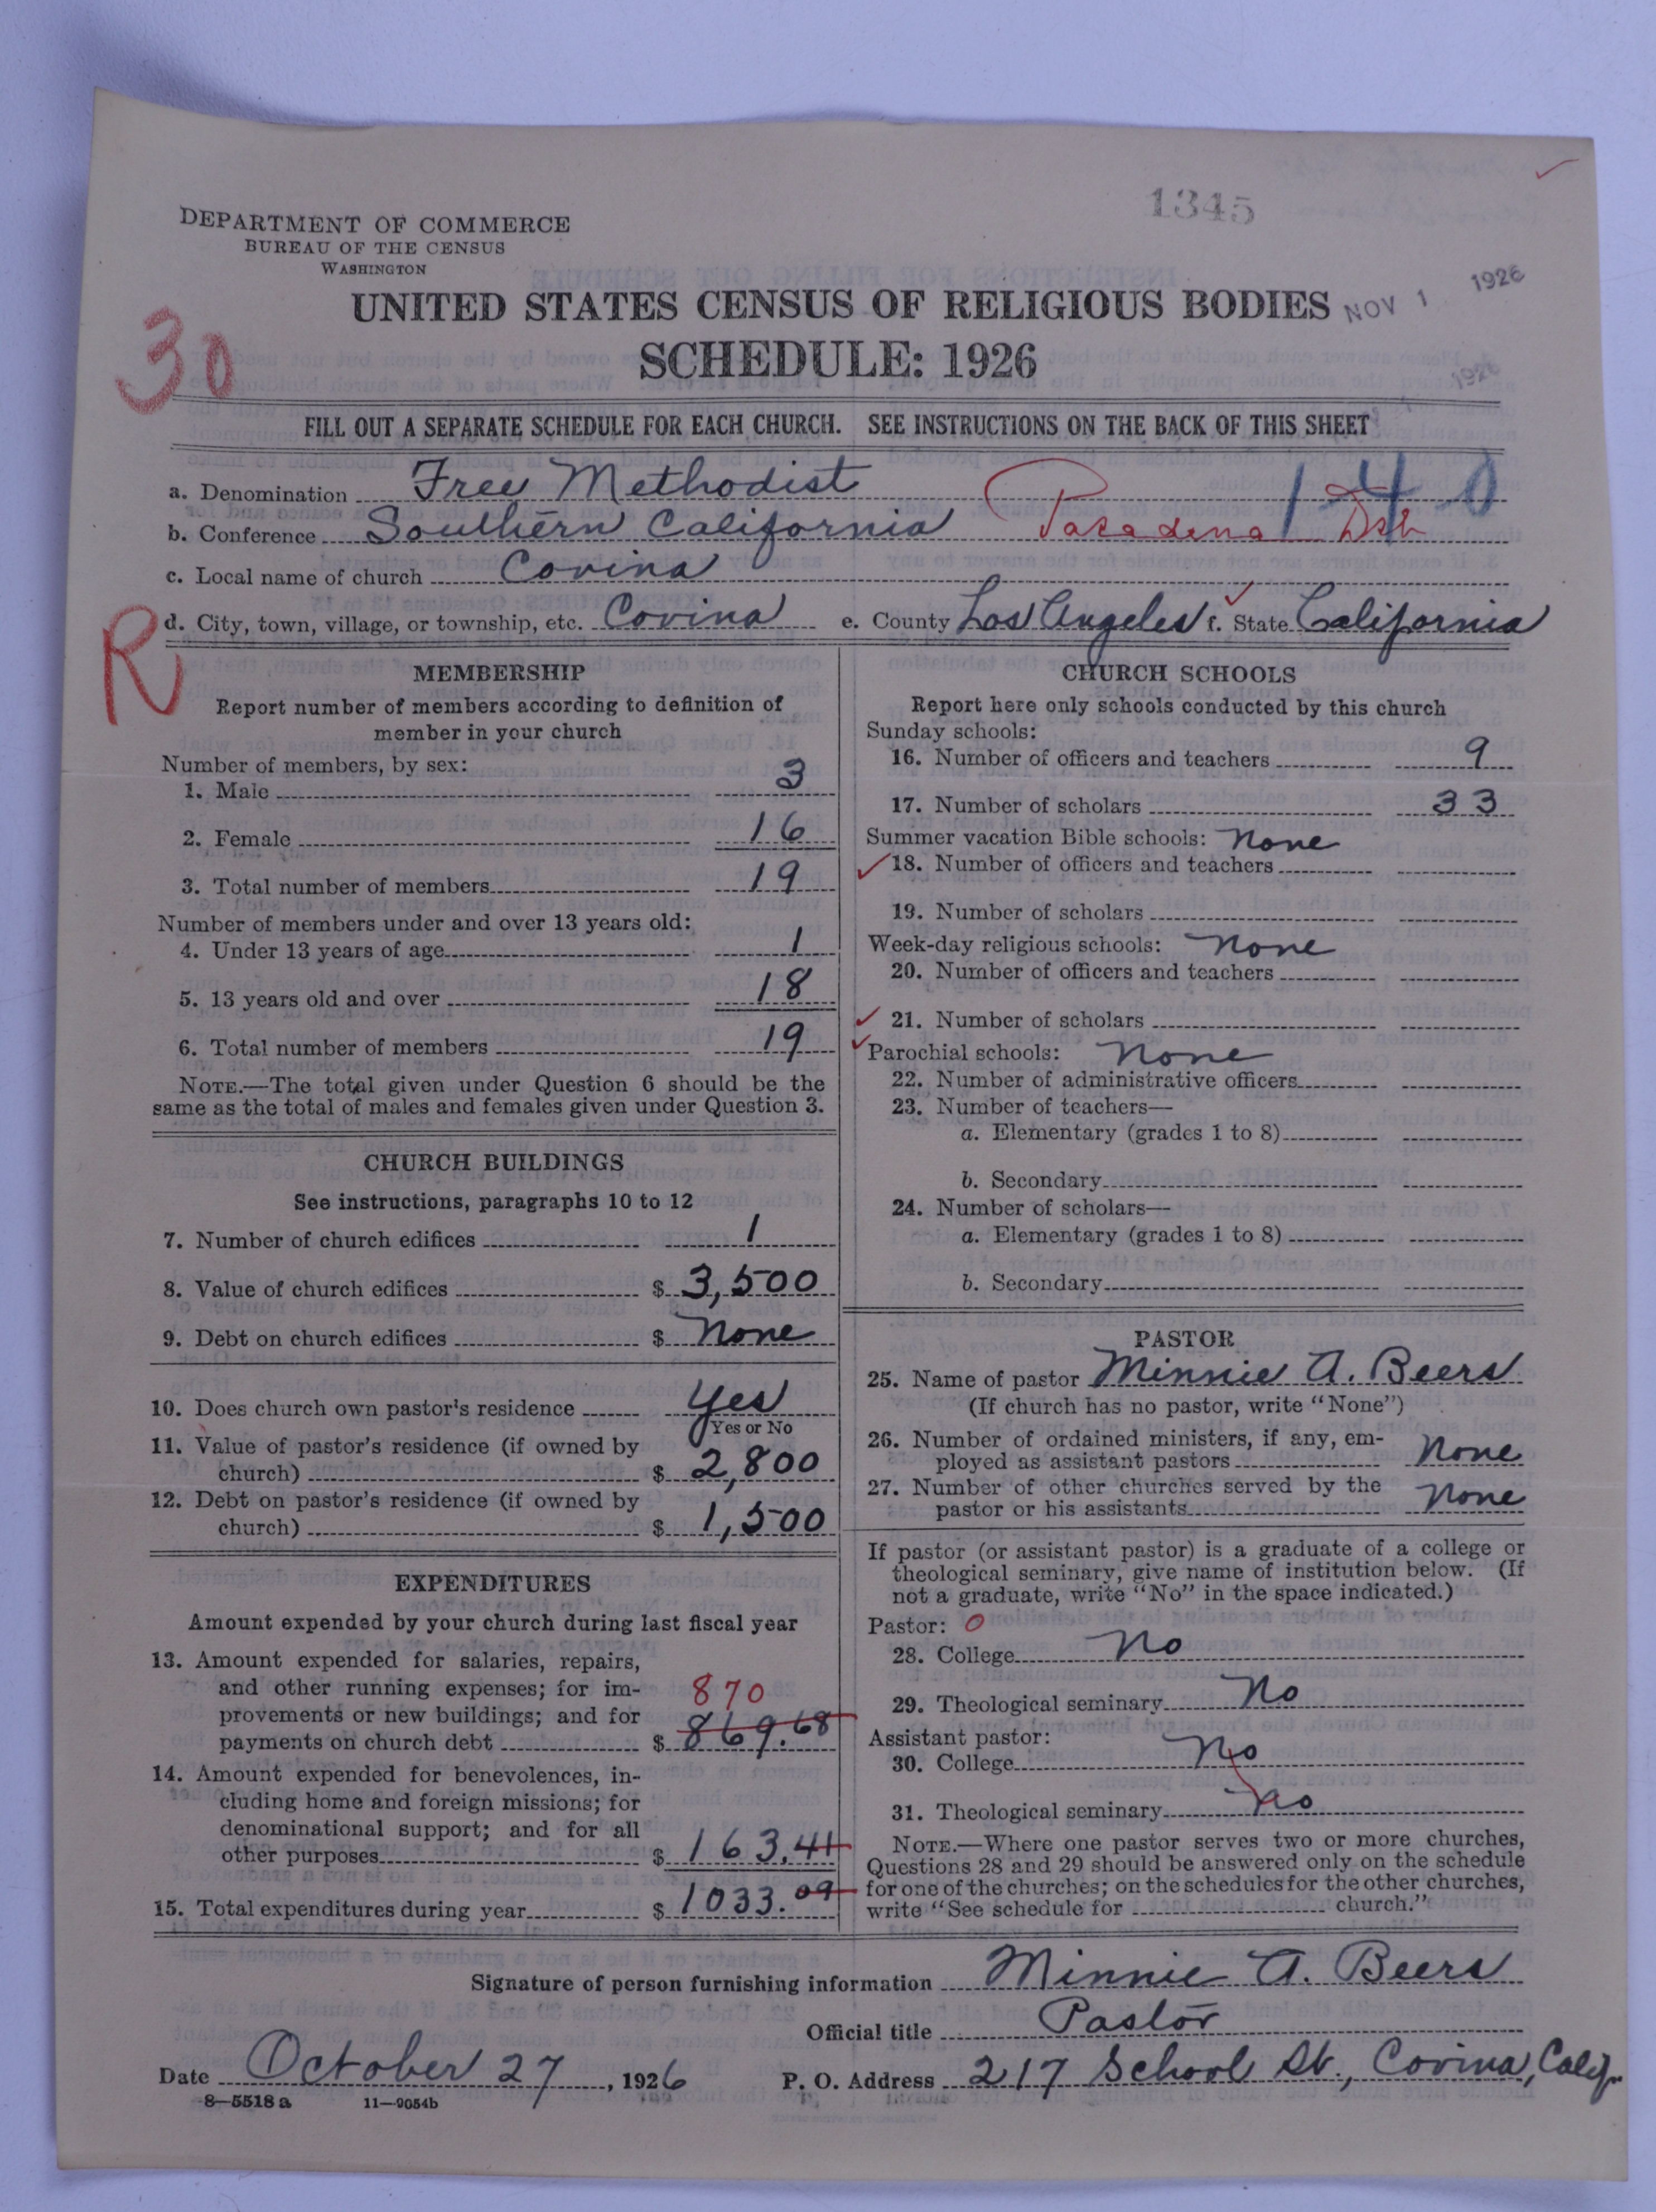 1345
DEPARTMENT OF COMMERCE
BUREAU OF THE CENSUS
WASHINGTON
UNITED STATES CENSUS OF RELIGIOUS BODIES
NOV 1 1926
1926
SCHEDULE: 1926
30
FILL OUT A SEPARATE SCHEDULE FOR EACH CHURCH. SEE INSTRUCTIONS ON THE BACK OF THIS SHEET
1-4-0
a. Denomination Free Methodist
b. Conference Southern California Pasadena Dist
c. Local name of church Covina
R
d. City, town, village, or township, etc. Covina e. County Los Angeles f. State California
MEMBERSHIP
Report number of members according to definition of
member in your church
Number of members, by sex:
1. Male 3
2. Female 16
3. Total number of members 19
Number of members under and over 13 years old:
4. Under 13 years of age 1
5. 13 years old and over 18
6. Total number of members 19
NOTE.—The total given under Question 6 should be the
same as the total of males and females given under Question 3.
CHURCH BUILDINGS
See instructions, paragraphs 10 to 12
7. Number of church edifices 1
8. Value of church edifices $ 3,500
9. Debt on church edifices $ None
10. Does church own pastor's residence Yes
Yes or No
11. Value of pastor's residence (if owned by
church) $ 2,800
12. Debt on pastor's residence (if owned by
church) $ 1,500
EXPENDITURES
Amount expended by your church during last fiscal year
13. Amount expended for salaries, repairs,
and other running expenses; for im-
870
provements or new buildings; and for
payments on church debt $ 869.68
14. Amount expended for benevolences, in-
cluding home and foreign missions; for
denominational support; and for all
other purposes $ 163.41
15. Total expenditures during year $ 1033.09
CHURCH SCHOOLS
Report here only schools conducted by this church
Sunday schools:
16. Number of officers and teachers 9
17. Number of scholars 33
Summer vacation Bible schools: None
18. Number of officers and teachers
19. Number of scholars
Week-day religious schools: None
20. Number of officers and teachers
21. Number of scholars
Parochial schools: None
22. Number of administrative officers
23. Number of teachers—
a. Elementary (grades 1 to 8)
b. Secondary
24. Number of scholars—
a. Elementary (grades 1 to 8)
b. Secondary
PASTOR
25. Name of pastor Minnie A. Beers
(If church has no pastor, write "None")
26. Number of ordained ministers, if any, em-
ployed as assistant pastors None
27. Number of other churches served by the
pastor or his assistants None
If pastor (or assistant pastor) is a graduate of a college or
theological seminary, give name of institution below. (If
not a graduate, write "No" in the space indicated.)
Pastor: 0
28. College No
29. Theological seminary No
Assistant pastor:
30. College No
31. Theological seminary No
NOTE.—Where one pastor serves two or more churches,
Questions 28 and 29 should be answered only on the schedule
for one of the churches; on the schedules for the other churches,
write "See schedule for church."
Signature of person furnishing information Minnie A. Beers
Official title Pastor
Date October 27, 1926 P. O. Address 217 School St., Covina, Calif.
8—5518 a 11—9054b